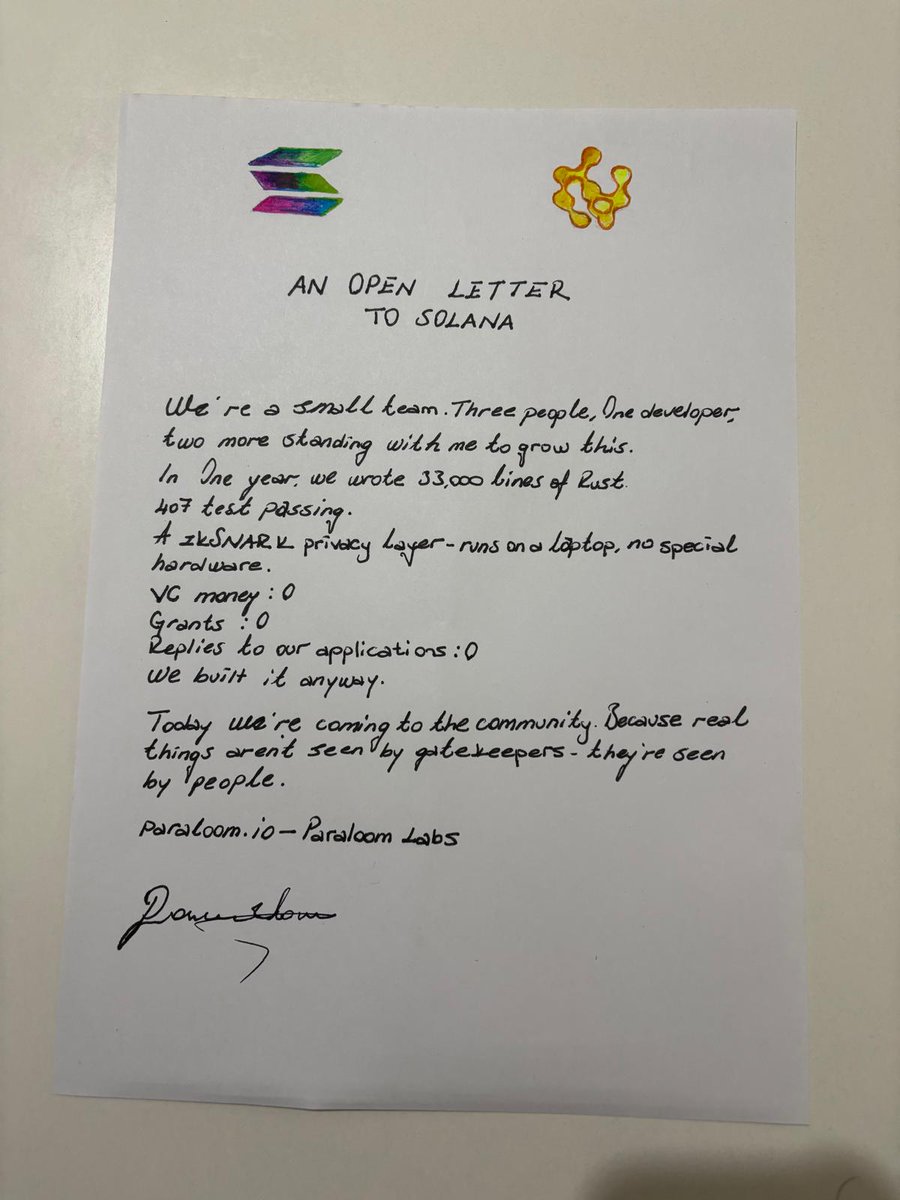 AN OPEN LETTER
TO SOLANA
We're a small team. Three people, One developer,
two more standing with me to grow this.
In One year, we wrote 33,000 lines of Rust.
407 test passing.
A zkSNARK privacy layer - runs on a laptop, no special
hardware.
VC money : 0
Grants : 0
Replies to our applications : 0
We built it anyway.
Today we're coming to the community. Because real
things aren't seen by gatekeepers - they're seen
by people.
paraloom.io - Paraloom Labs